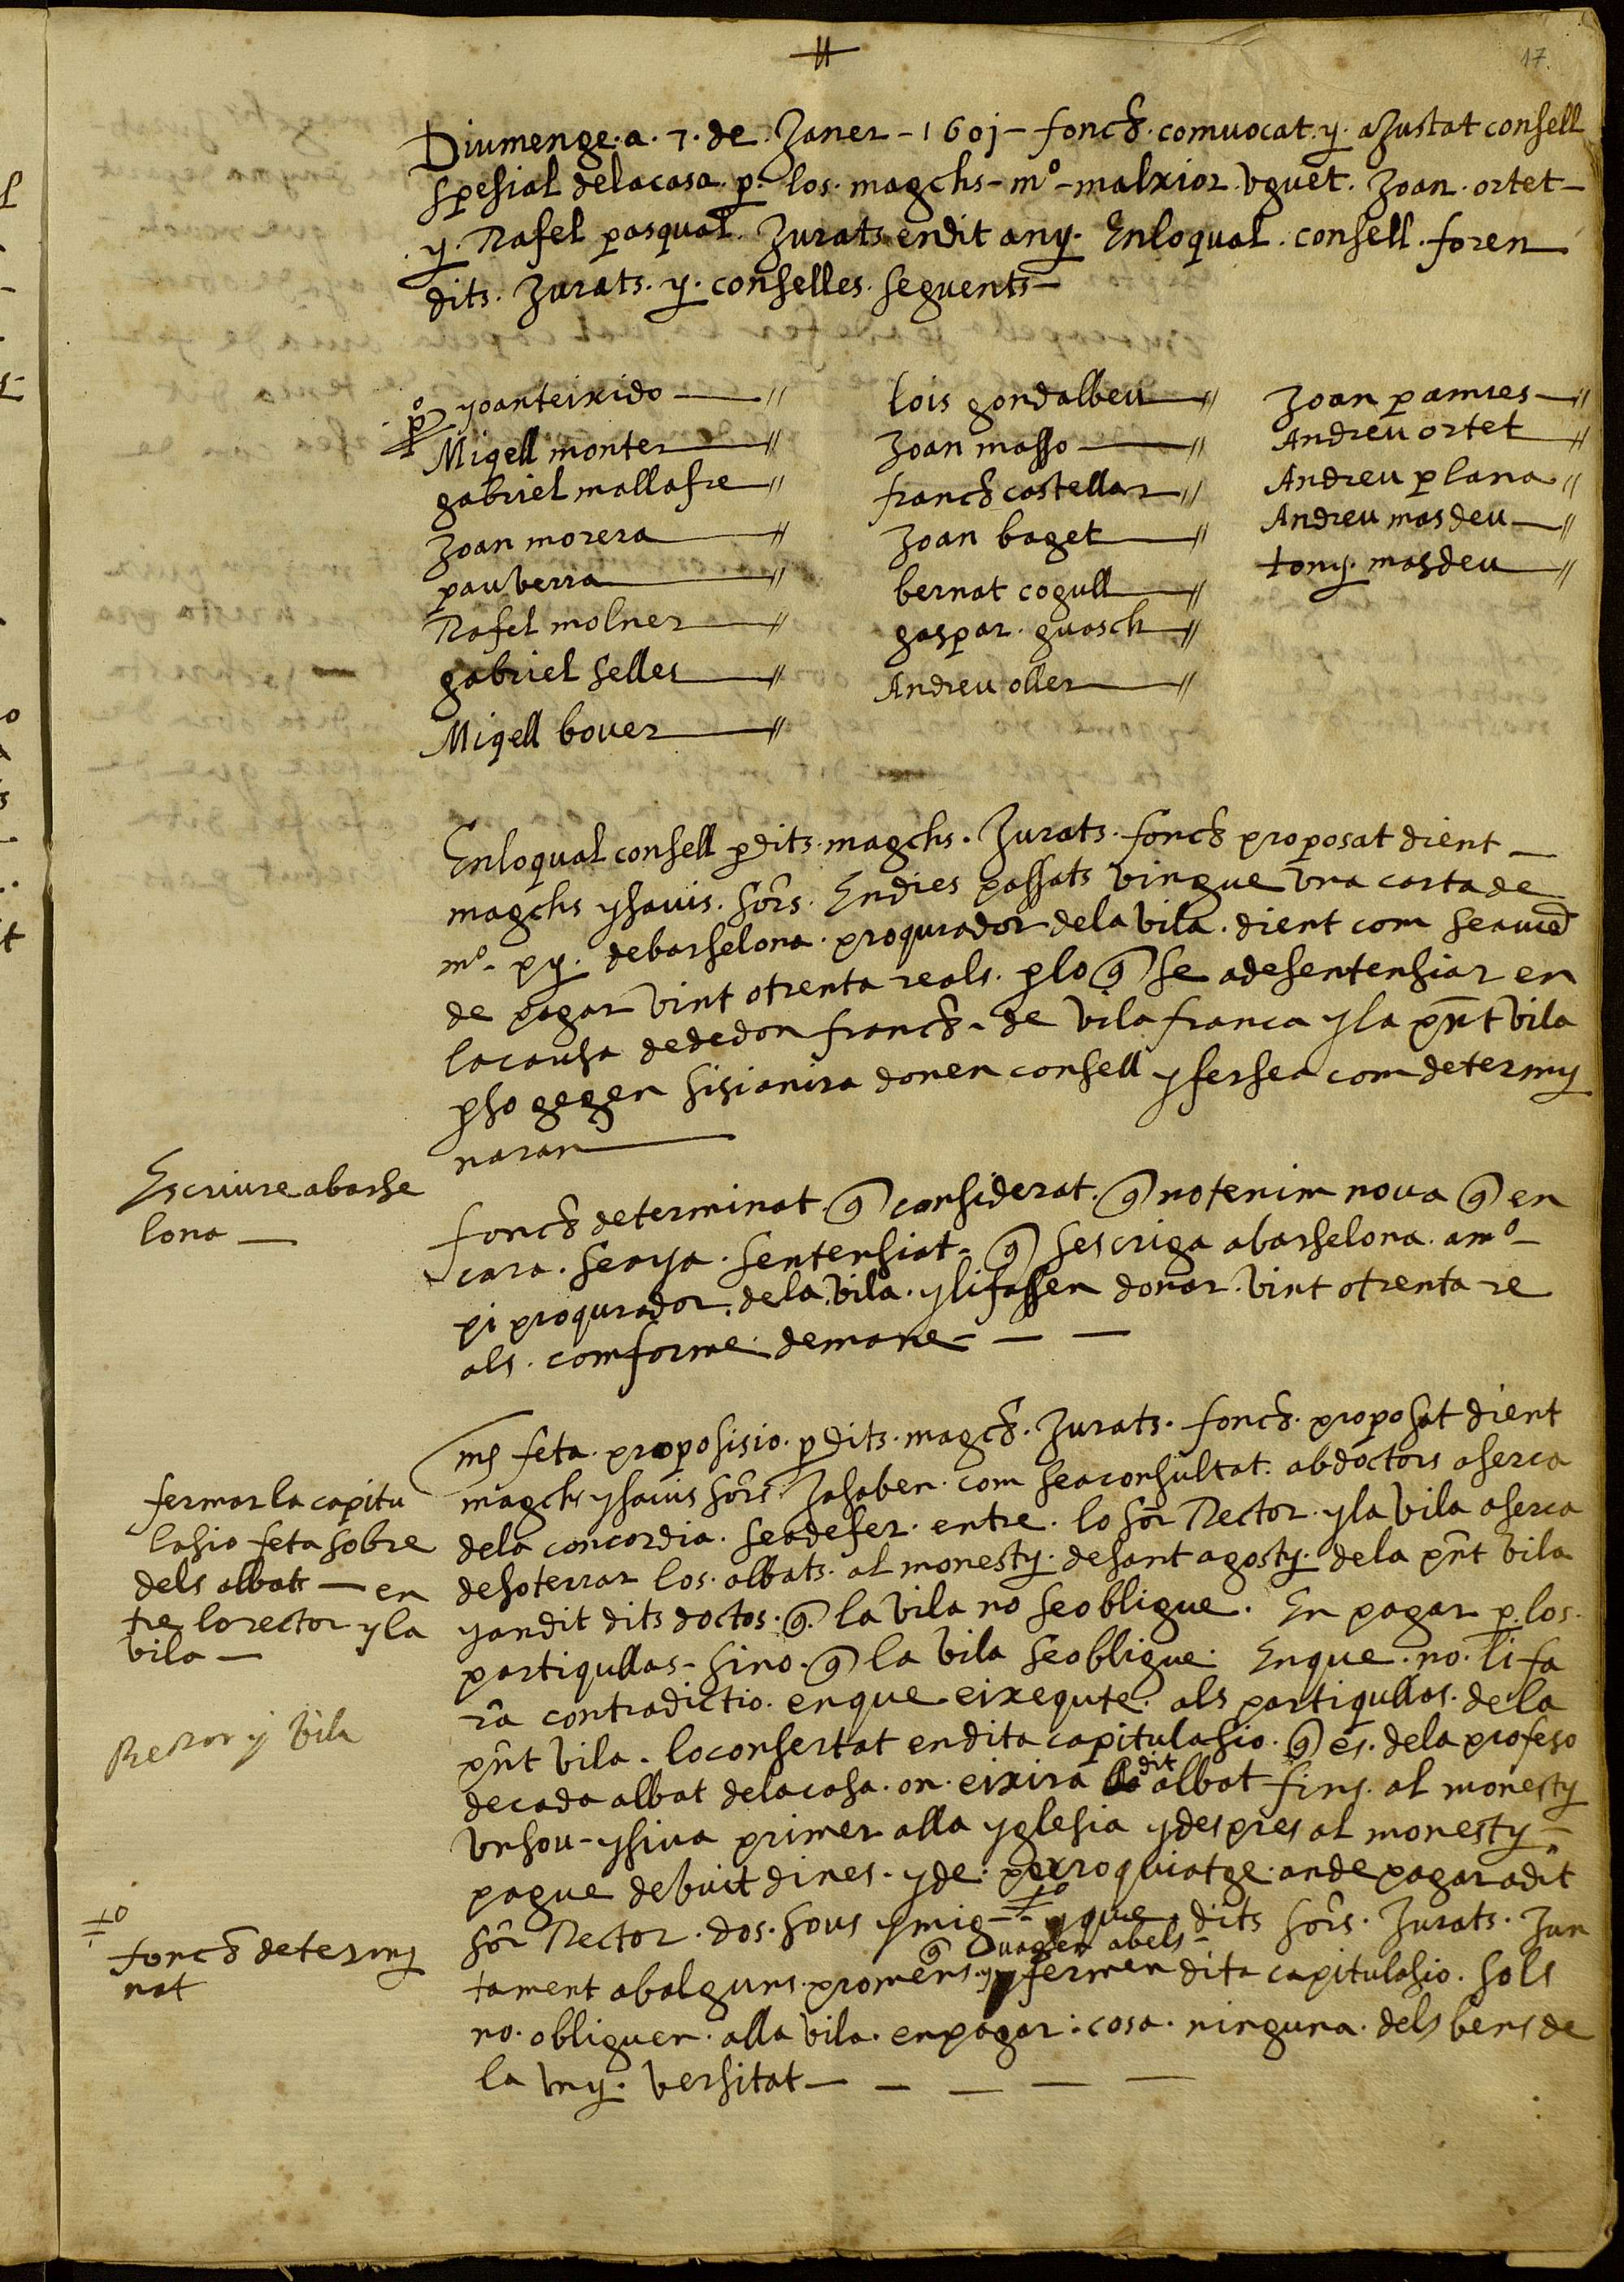 17.
Diumenge. a. 7. de. Janer - 1601 - fonch. comvocat. y. aJustat consell
spesial delacasa. p. los. magchs - mº - malxior. vguet. Joan. ortet -
y. Rafel pasqual. Jurats endit any. Enloqual. consell. foren
dits. Jurats. y. conselles. seguents -
pº yoanteixido — //
Miqell monter — //
gabriel mallafre //
Joan morera — //
pau verra — //
Rafel molner — //
gabriel selles — //
Miqell bover — //
lois gondalbeu — //
Joan masso — //
franch castellar — //
Joan baget — //
bernat cogull — //
gaspar. guasch — //
Andreu oller — //
Joan pamies — //
Andreu ortet — //
Andreu plana //
Andreu masdeu — //
tony. masdeu — //
Enloqual consell pdits. magchs. Jurats. fonch proposat dient —
magchs ysavis. sors. Endies passats vingue vna carta de
mº. py. debarselona. proqurador dela vila. dient com seaured
de pagar vint otrenta reals. plo q se adesentensiar en
lacausa dededon franch. de vila franca yla pnt vila
pso gegen sisianira donen consell yfersea com determy
naran —
Escriure abarse
lona —
fonch determinat. q considerat. q notenim nova q en
cara. seaya. sentensiat. q sescriga abarselona. amº -
pi proqurador. dela. vila. ylifassen donar. vint otrenta re
als. comforme. demane - — —
fermar la capitu
lasio feta sobre
dels albats — en
tre lorector yla
vila —
ms feta. proposisio. pdits. magch. Jurats. fonch. proposat dient
magchs ysavis sors Jasaben. com seaconsultat. abdoctors aserca
dela concordia. seadefer. entre. lo sor Rector. yla vila aserca
desoterrar los. albats. al monesty. desant agosty. dela pnt vila
yandit dits doctos. q. la vila no seobligue. En pagar p. los.
partiqullas - sino. q la vila seobligue. Enque. no. li fa
ra contradictio. enque eixequte. als partiqullas. dela
pnt vila. loconsertat endita capitulasio. q es. dela profeso
Rector y vila
decada albat delacasa. on. eixira dit albat fins. al monesty
vnsou - ysiva primer alla yglesia ydespres al monesty -
pague debuit dines. yde. parroquiatge. ande pagar adit
sor Rector. dos. sous ymig - tº yque. dits sors. Jurats. Jun
tº
fonch determy
nat
tament abalguns. promens. q vagen abels - y fermen dita capitulasio. sols
no. obliguen. alla vila. enpagar. cosa. ninguna. dels bens de
la vny. versitat — — — — —